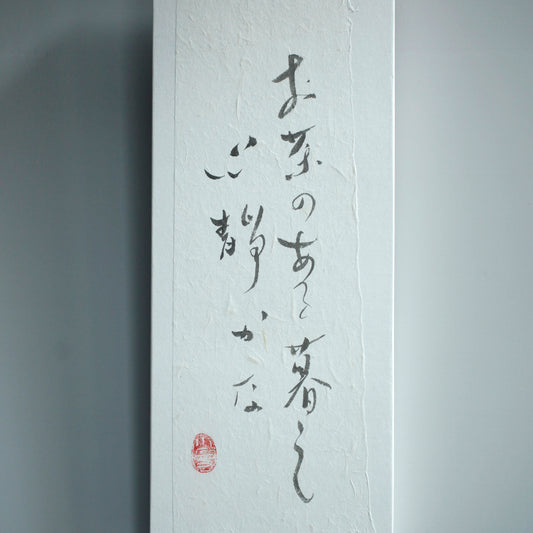 お茶のある暮らし
心静かな